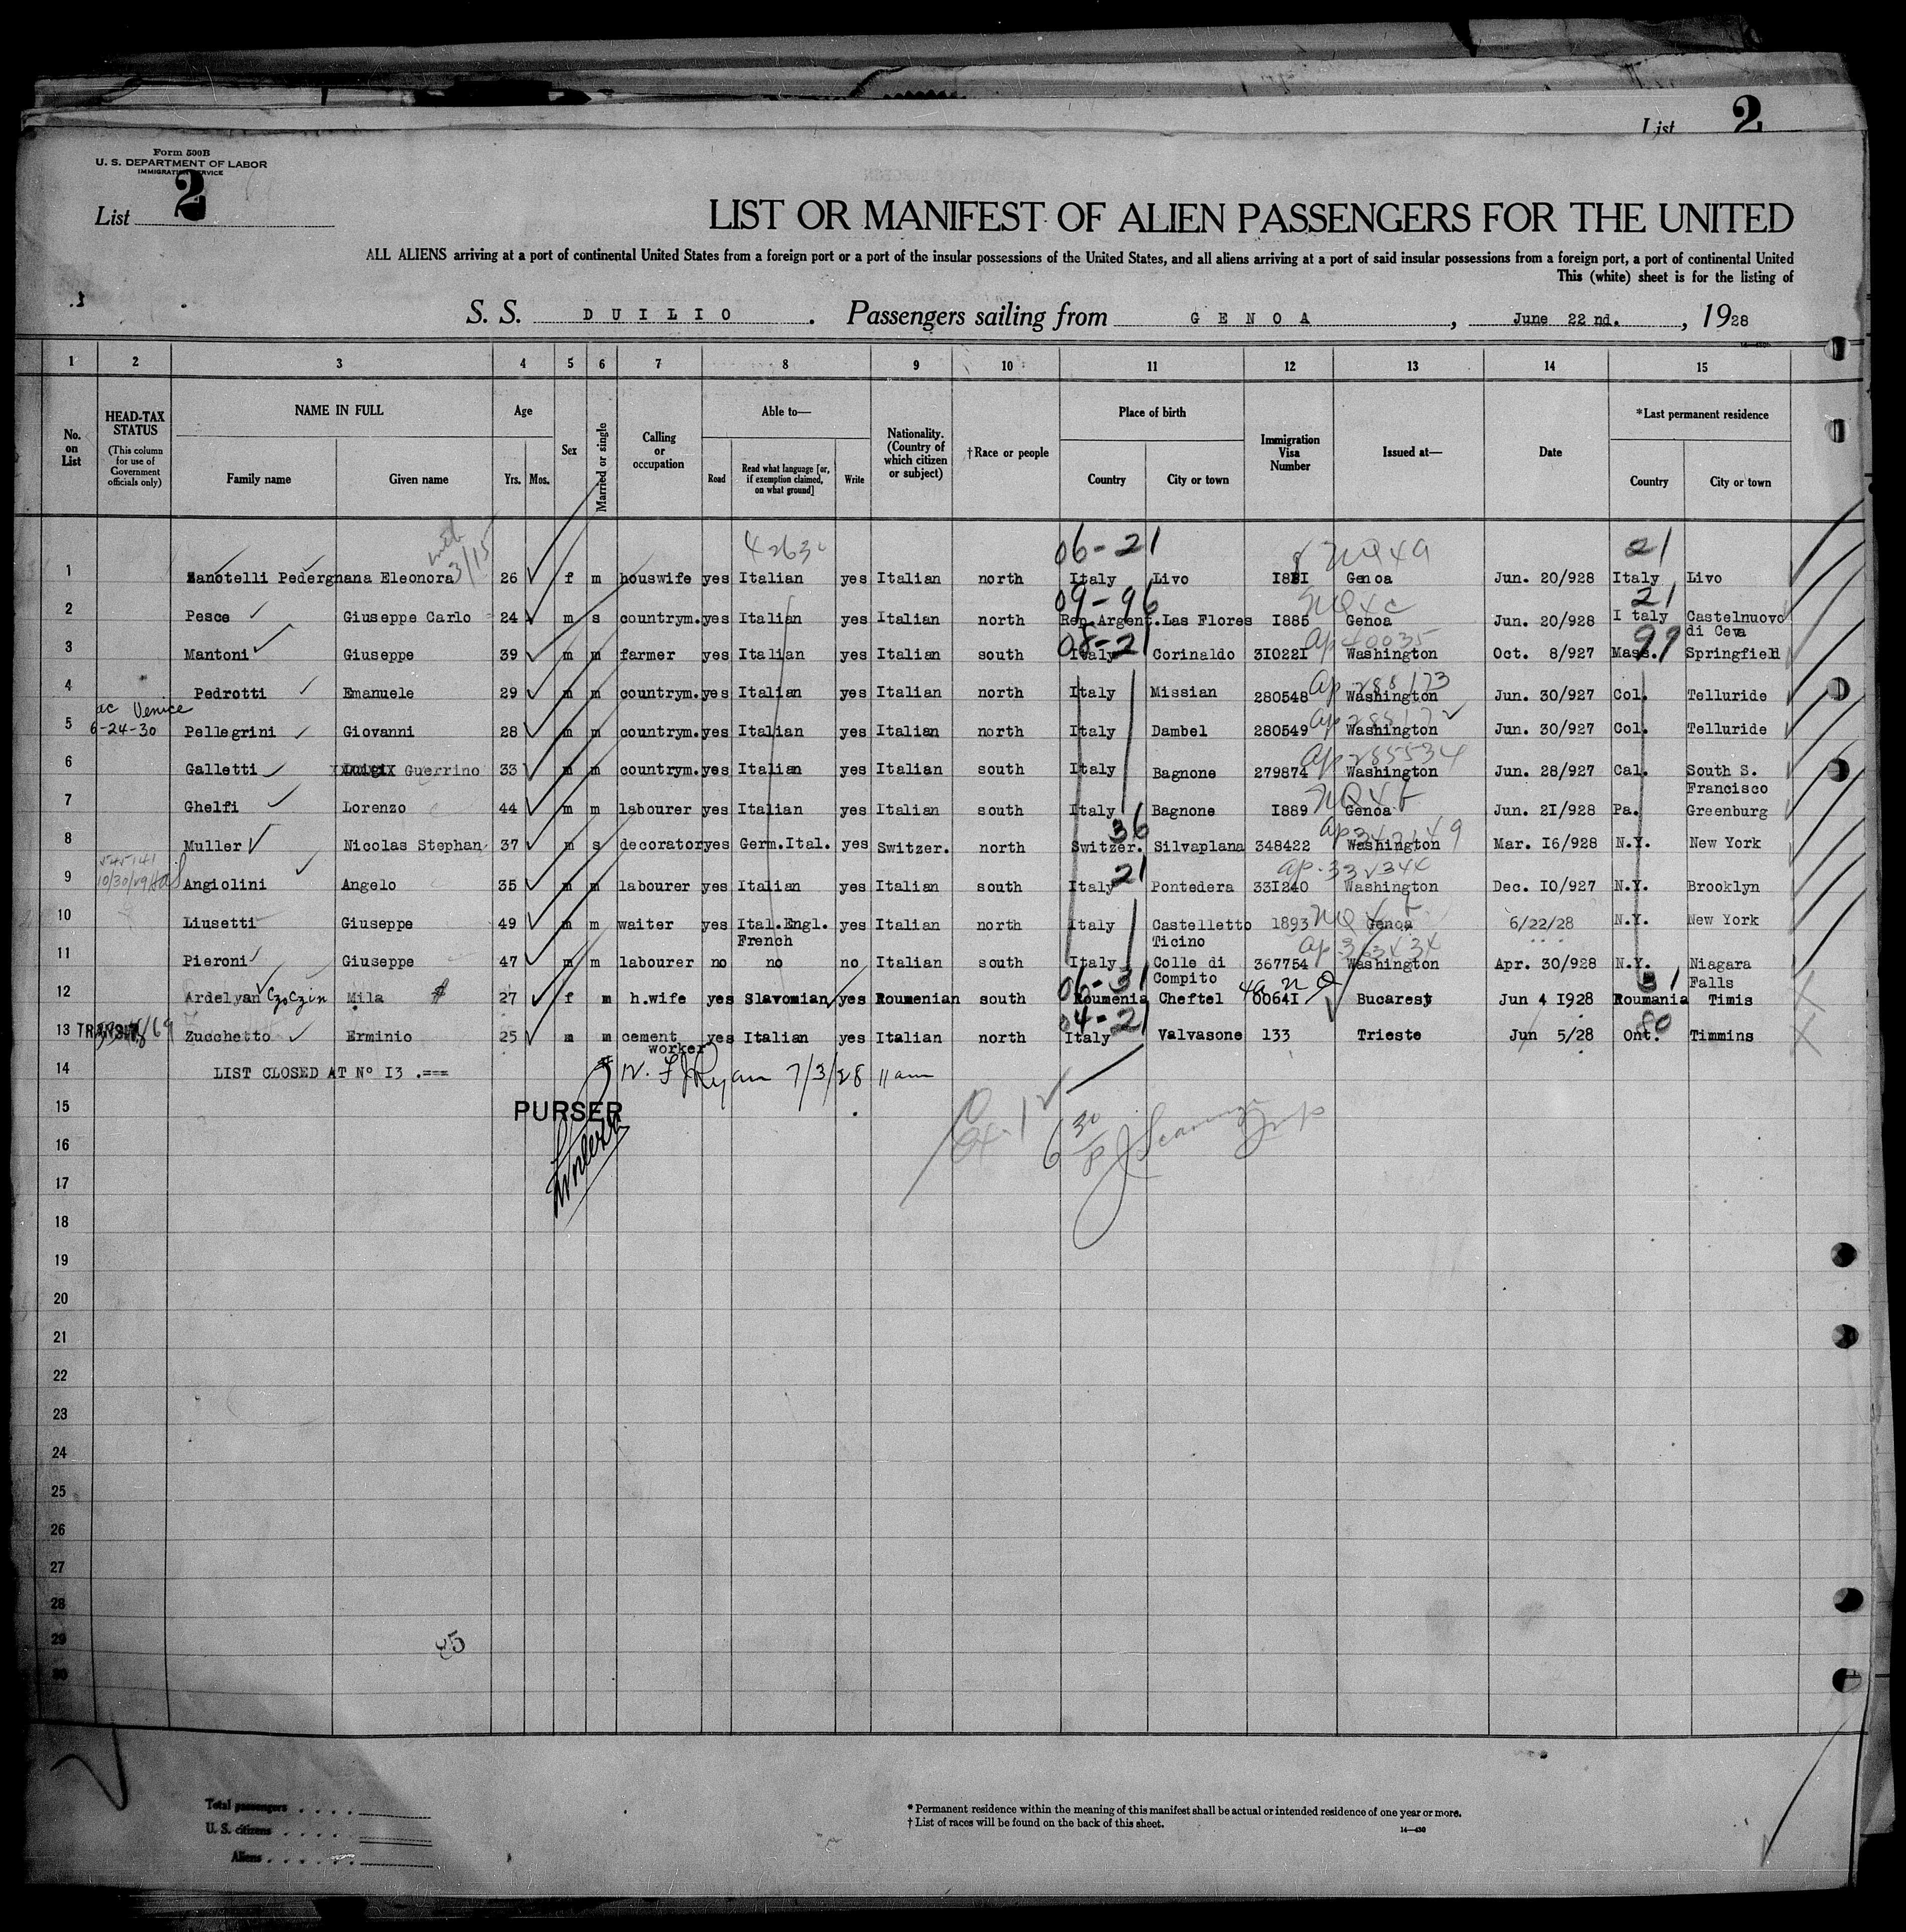 List 2
Form 500B
U. S. DEPARTMENT OF LABOR
IMMIGRATION SERVICE
List 2
LIST OR MANIFEST OF ALIEN PASSENGERS FOR THE UNITED
ALL ALIENS arriving at a port of continental United States from a foreign port or a port of the insular possessions of the United States, and all aliens arriving at a port of said insular possessions from a foreign port, a port of continental United
This (white) sheet is for the listing of
S. S. DUILIO. Passengers sailing from GENOA, June 22 nd., 1928
1 2 3 4 5 6 7 8 9 10 11 12 13 14 15
No. on List
HEAD-TAX STATUS (This column for use of Government officials only)
NAME IN FULL Family name Given name
Age Yrs. Mos.
Sex
Married or single
Calling or occupation
Able to— Read Read what language [or, if exemption claimed, on what ground] Write
Nationality. (Country of which citizen or subject)
†Race or people
Place of birth Country City or town
Immigration Visa Number
Issued at—
Date
*Last permanent residence Country City or town
3/15 06-21 21
1 Zanotelli Pedergnana Eleonora 26 f m houswife yes Italian yes Italian north Italy Livo Genoa Jun. 20/928 Italy Livo
09-96 21
2 Pesce Giuseppe Carlo 24 m s countrym. yes Italian yes Italian north Rep.Argent. Las Flores I885 Genoa Jun. 20/928 I taly Castelnuovo di Ceva
08-21 99
3 Mantoni Giuseppe 39 m m farmer yes Italian yes Italian south Italy Corinaldo 3I022I Washington Oct. 8/927 Mass. Springfield
4 Pedrotti Emanuele 29 m m countrym. yes Italian yes Italian north Italy Missian 280548 Washington Jun. 30/927 Col. Telluride
Venice
5 6-24-30 Pellegrini Giovanni 28 m m countrym. yes Italian yes Italian north Italy Dambel 280549 Washington Jun. 30/927 Col. Telluride
6 Galletti Guerrino 33 m m countrym. yes Italian yes Italian south Italy Bagnone 279874 Washington Jun. 28/927 Cal. South S. Francisco
7 Ghelfi Lorenzo 44 m m labourer yes Italian yes Italian south Italy Bagnone I889 Genoa Jun. 2I/928 Pa. Greenburg
36
8 Muller Nicolas Stephan 37 m s decorator yes Germ.Ital. yes Switzer. north Switzer. Silvaplana 348422 Washington Mar. I6/928 N.Y. New York
21
9 10/30/29 Angiolini Angelo 35 m m labourer yes Italian yes Italian south Italy Pontedera 33I240 Washington Dec. I0/927 N.Y. Brooklyn
10 Liusetti Giuseppe 49 m m waiter yes Ital.Engl. French yes Italian north Italy Castelletto Ticino 1893 Genoa 6/22/28 N.Y. New York
11 Pieroni Giuseppe 47 m m labourer no no no Italian south Italy Colle di Compito 367754 Washington Apr. 30/928 N.Y. Niagara Falls
06-31 31
12 Ardelyan Czoczin Mila 27 f m h.wife yes Slavomian yes Roumenian south Roumenia Cheftel 0064I Bucarest Jun 4 I928 Roumania Timis
04-21 80
13 TRANSIT Zucchetto Erminio 25 m m cement worker yes Italian yes Italian north Italy Valvasone 133 Trieste Jun 5/28 Ont. Timmins
14 LIST CLOSED AT N° I3 .===
Ryan 7/3/28 11 am
15 PURSER
16
17
18
19
20
21
22
23
24
25
26
27
28
29
30
85
Total passengers
U. S. citizens
Aliens
* Permanent residence within the meaning of this manifest shall be actual or intended residence of one year or more.
† List of races will be found on the back of this sheet.
14—430